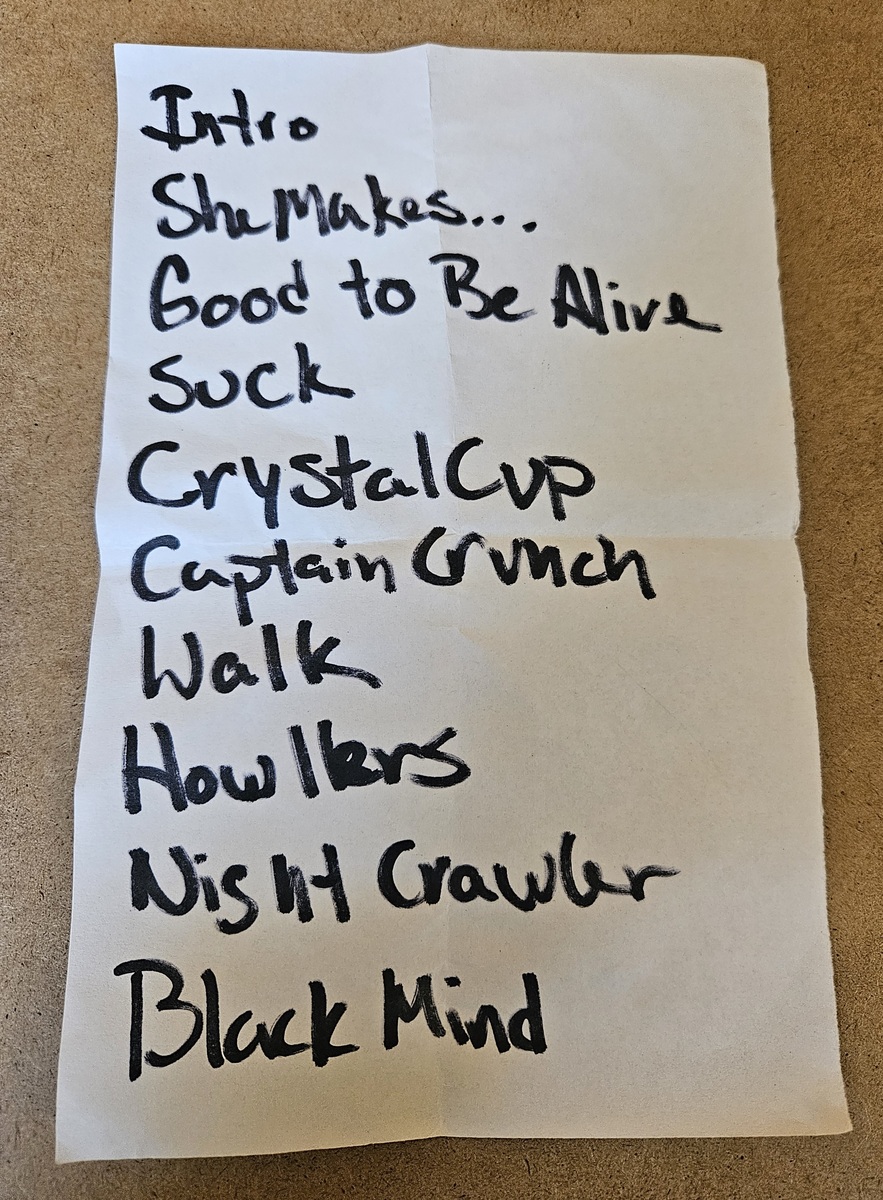 Intro
She Makes...
Good to Be Alive
Suck
Crystal Cup
Captain Crunch
Walk
Howllers
Night Crawler
Black Mind